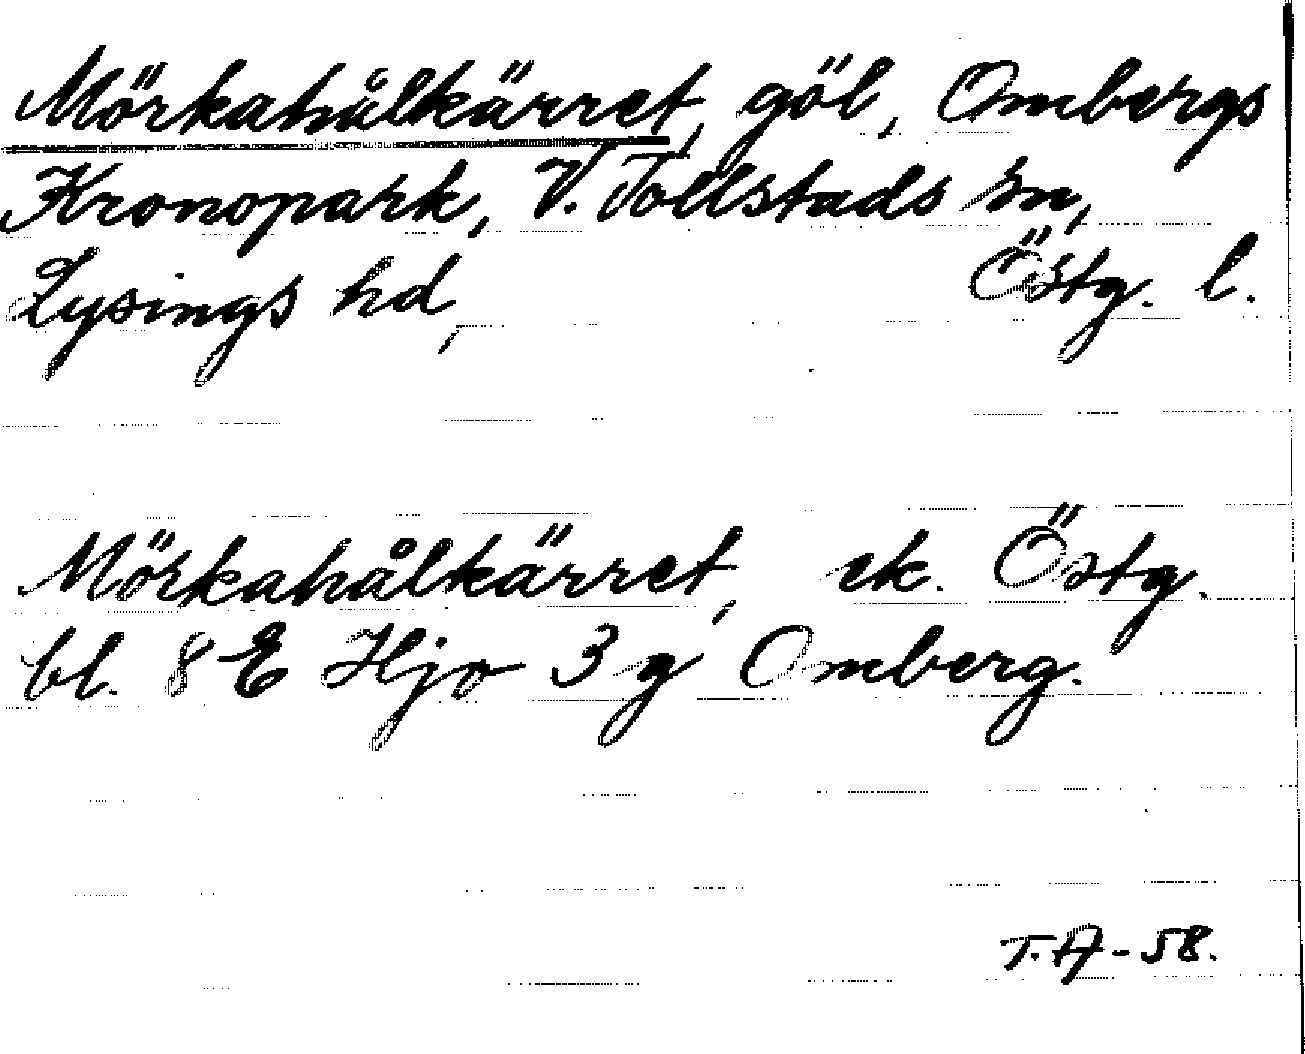 Mörkahålkärret, göl, Ombergs
Kronopark, V. Tollstads sn,
Lysings hd, Östg. l.
Mörkahålkärret, ek. Östg.
bl. 8 E Hjo 3 g Omberg.
T.A-58.